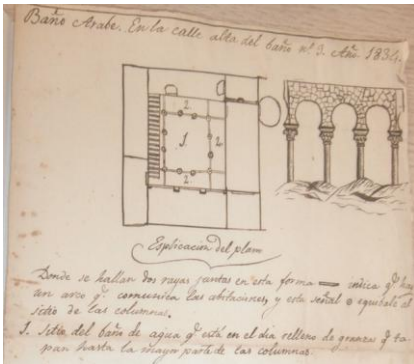 Baño Arabe. En la calle alta del baño nº 3. Año 1834.
2
1.
2
2
Esplicacion del plano
Donde se hallan dos rayas juntas en esta forma = indica qᵉ hay
un arco qᵉ comunica las abitaciones, y esta señal o equibale al
sitio de las columnas.
1. Sitio del baño de agua qᵉ está en el dia relleno de granzas qᵉ ta
pan hasta la mayor parte de las columnas.